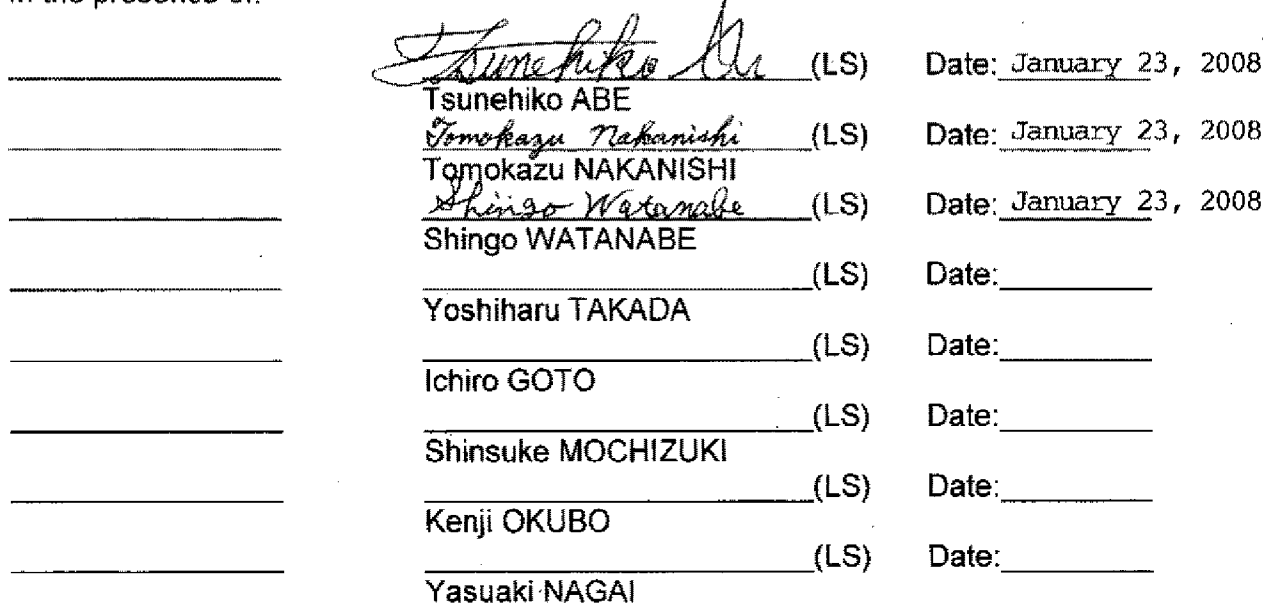 in the presence of:
Tsunehiko (LS) Date: January 23, 2008
Tsunehiko ABE
Tomokazu Nakanishi (LS) Date: January 23, 2008
Tomokazu NAKANISHI
Shingo Watanabe (LS) Date: January 23, 2008
Shingo WATANABE
(LS) Date:
Yoshiharu TAKADA
(LS) Date:
Ichiro GOTO
(LS) Date:
Shinsuke MOCHIZUKI
(LS) Date:
Kenji OKUBO
(LS) Date:
Yasuaki NAGAI